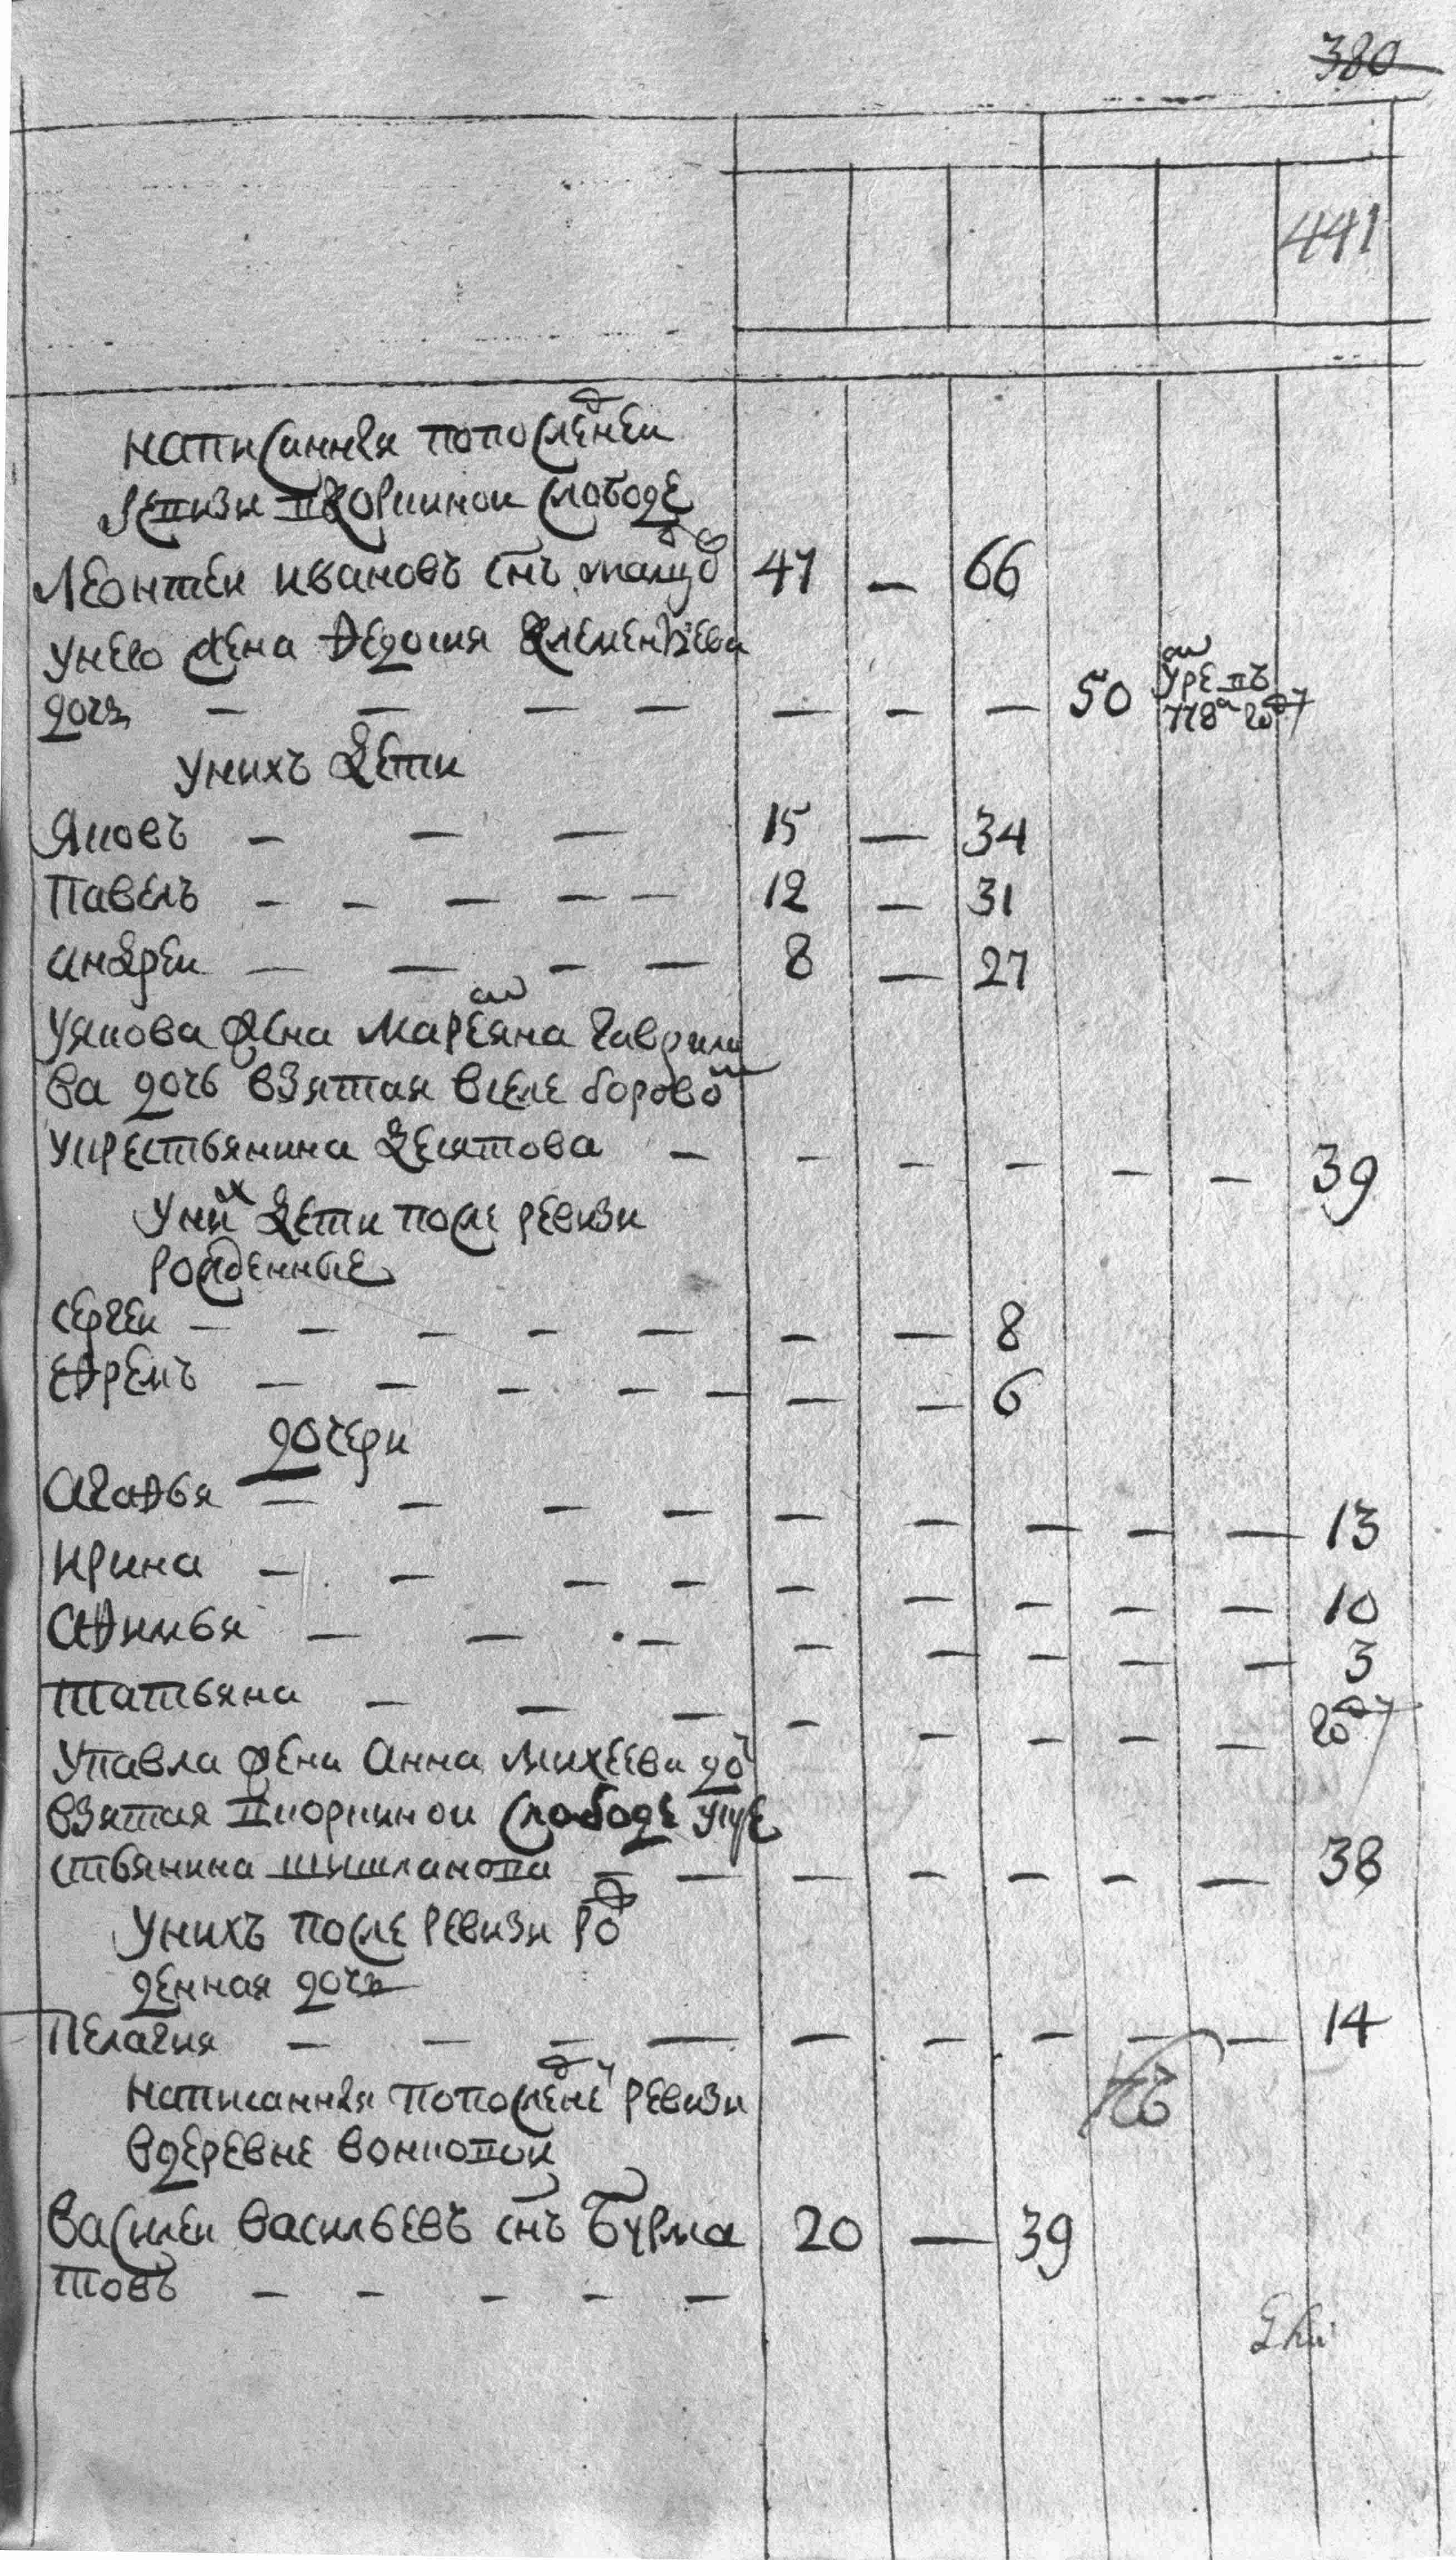 380
441
написанныя попоследнеи
ревизи вкоркинои слободе
Леонтеи ивановъ снъ 47 — 66
унего жена Федосия Клементьева
дочь — — — — — — — 50 умре въ
778м году
унихъ дети
Яковъ — — — 15 — 34
Павелъ — — — — — 12 — 31
андреи — — — — 8 — 27
уякова жена Маремяна Гаврило
ва дочь взятая вселе боровом
укрестьянина десятова — — — — — — 39
уних дети после ревизи
рожденные
сергеи — — — — — — — 8
ефремъ — — — — — — — 6
дочери
Агафья — — — — — — — — — 13
ирина — — — — — — — — — 10
афимья — — — — — — — — 3
татьяна — — — — — — — — году
упавла жена анна михеева доч
взятая вкоркинои слободе укре
стьянина шишланова — — — — — — — 38
унихъ после ревизи рож
денная дочь
Пелагия — — — — — — — — — 14
написанныя попоследнеи ревизи
вдеревне
Василеи васильевъ снъ Бурма 20 — 39
товъ — — — — —